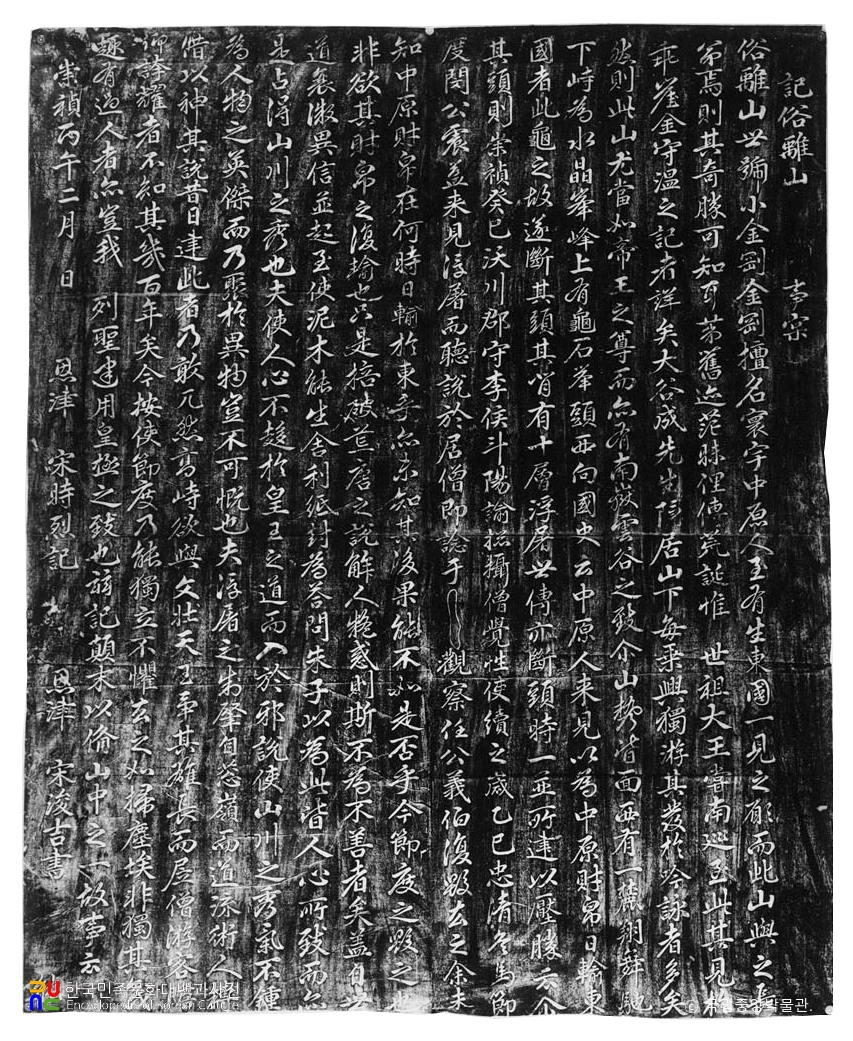 記俗離山 事宲
俗離山世號小金剛金剛擅名寰宇中原人至有生東國一見之願而此山與之爭
名焉則其奇勝可知耳第舊迹茫昧俚 荒誕惟 世祖大王嘗南巡至此其見
於崔金守溫之記者詳矣大谷成先生隱居山下每乘興獨游其發於吟詠者多矣
然則此山尤當如帝王之尊而亦有南嶽雲谷之致介山 皆面西有一麓翔舞馳
下峙為水晶峯峰上有龜石擧頭西向國史云中原人来見以為中原財帛日輸東
國者此龜之故遂斷其頭其背有十層浮屠世傳亦斷頭時一並所建以壓勝云介
其頭則崇禎癸巳沃川郡守李侯斗陽諭招攝僧覺性使續之歲乙巳忠清兵馬節
度閔公震益来見浮屠而聽說於居僧即諗于 觀察任公義伯復毀去之余未
知中原財帛在何時日輸於東乎亦未知其後果能不如是否乎今節度之毀之也
非欲其財帛之復輸也只是掊破荒唐之說解人疑惑則斯不為不善者矣盖自
道衰微異信並起至使泥木能生舍利紙封為答問朱子以為此皆人心所致而亦
是占得山川之秀也夫使人心不趍於皇王之道而入於邪說使山川之秀氣不鍾
為人物之英傑而乃聚於異物豈不可慨也夫浮屠之制肇自葱嶺而道流術人
借以神其說昔日建此者乃敢兀然高峙欲與文壮天王爭其雄長而居僧游客
仰誇耀者不知其幾百年矣今按使節度乃能獨立不懼去之如掃塵埃非獨其
趣有過人者亦豈我 列聖建用皇極之致也玆記顚末以備山中之一故事云
崇禎丙午二月 日 恩津 宋時烈記 恩津 宋浚吉書
한국민족문화대백과사전
Encyclopedia of Korean Culture
© 국립중앙박물관.